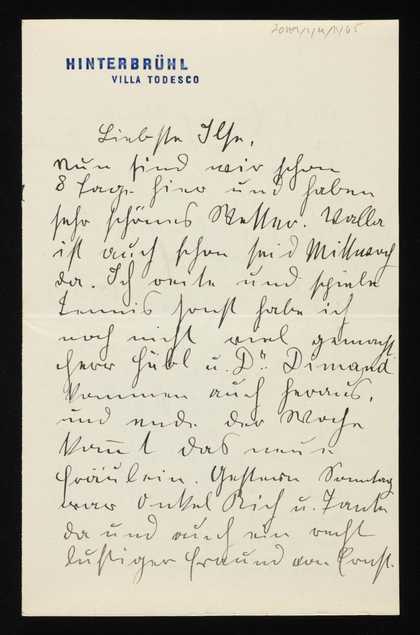 HINTERBRÜHL
VILLA TODESCO
Liebste Ilse,
Nun sind wir schon
8 Tage hier und haben
sehr schönes Wetter. Valla
ist auch schon seid Mittwoch
da. Ich reite und spiele
Tennis sonst habe ich
noch nicht viel gemacht.
Herr Hübl u. Dr. Dimand
kommen auch heraus,
und ende der Woche
kom̅t das neue
Fräulein. Gestern Sonntag
war Onkel Rich u. Tante
da und auch ein recht
lustiger Freund von Ernst.